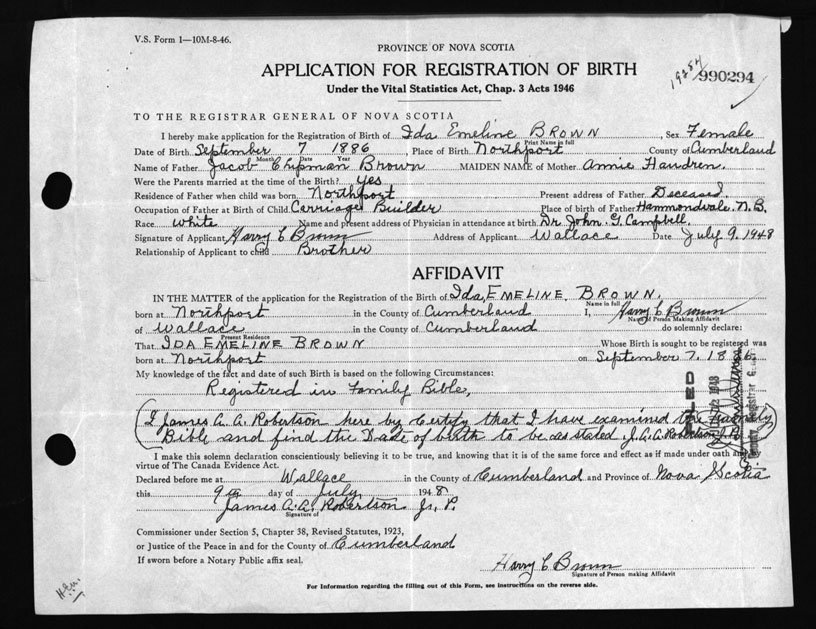 V.S. Form 1—10M-8-46.
PROVINCE OF NOVA SCOTIA
APPLICATION FOR REGISTRATION OF BIRTH
Under the Vital Statistics Act, Chap. 3 Acts 1946
990294
TO THE REGISTRAR GENERAL OF NOVA SCOTIA
I hereby make application for the Registration of Birth of Ida Emeline BROWN Sex Female
Print Name in full
Date of Birth September 7 1886 Place of Birth Northport County of Cumberland
Month Date Year
Name of Father Jacob Chipman Brown MAIDEN NAME of Mother Annie Haudren.
Were the Parents married at the time of the Birth? Yes
Residence of Father when child was born Northport Present address of Father Deceased
Occupation of Father at Birth of Child Carriage Builder Place of birth of Father Hammondvale. N.B.
Race White Name and present address of Physician in attendance at birth Dr. John G. Campbell.
Signature of Applicant Harry C Brown Address of Applicant Wallace Date July 9. 1948
Relationship of Applicant to child Brother
AFFIDAVIT
IN THE MATTER of the application for the Registration of the Birth of Ida EMELINE BROWN.
Name in full
born at Northport in the County of Cumberland I, Harry C Brown
Name of Person Making Affidavit
of Wallace in the County of Cumberland do solemnly declare:
Present Residence
That IDA EMELINE BROWN Whose Birth is sought to be registered was
born at Northport on September 7, 1886
My knowledge of the fact and date of such Birth is based on the following Circumstances:
Registered in Family Bible,
(I James A. A. Robertson here by Certify that I have examined the Family
Bible and find the Date of birth to be as stated J. A. A. Robertson
FILED
I make this solemn declaration conscientiously believing it to be true, and knowing that it is of the same force and effect as if made under oath and by
virtue of The Canada Evidence Act.
Declared before me at Wallace in the County of Cumberland and Province of Nova Scotia
this 9th day of July 1948.
James A. A. Robertson J. P.
Signature of
Commissioner under Section 5, Chapter 38, Revised Statutes, 1923,
or Justice of the Peace in and for the County of Cumberland
If sworn before a Notary Public affix seal.
Harry C Brown
Signature of Person making Affidavit
For Information regarding the filling out of this Form, see instructions on the reverse side.